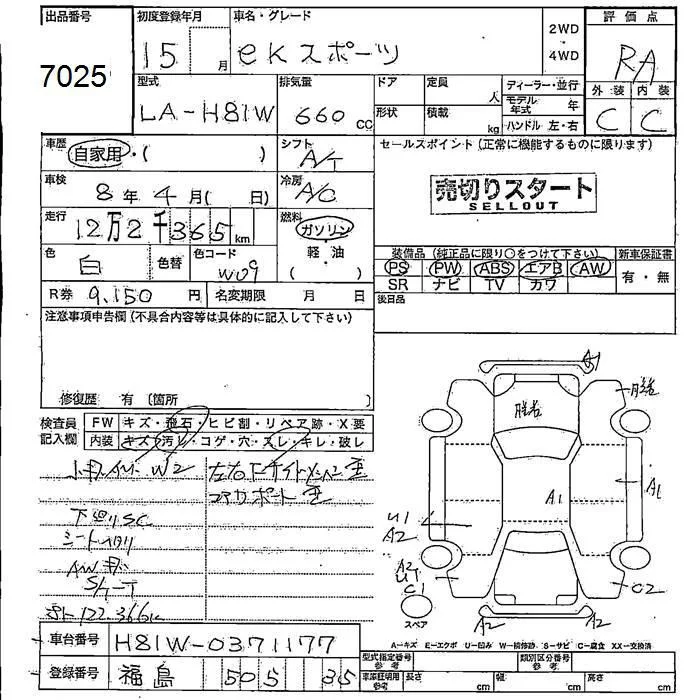 出品番号
7025
初度登録年月
15 月
車名・グレード
eKスポーツ
2WD
・
4WD
評価点
RA
外装 内装
C C
型式
LA-H81W
排気量
660 cc
ドア
定員
人
形状
積載
kg
ディーラー・並行
モデル年式 年
ハンドル 左・右
車歴
自家用・( )
シフト
A/T
セールスポイント (正常に機能するものに限ります)
売切りスタート
SELLOUT
車検
8年4月( 日)
冷房
A/C
走行
12万2千365km
燃料
ガソリン
軽・油
( )
色
白
色替
色コード
W09
装備品 (純正品に限り○をつけて下さい)
PS PW ABS エアB AW
SR ナビ TV カワ
新車保証書
有・無
R券 9,150 円
名変期限 月 日
後日品
注意事項申告欄(不具合内容等は具体的に記入して下さい)
修復歴 有 〔箇所 〕
検査員
記入欄
FW キズ・飛石・ヒビ割・リペア跡・X要
内装 キズ・汚レ・コゲ・穴・スレ・キレ・破レ
W2
コアサポート
下廻りSC
シート
AW
122,366k
A1
A1
A1
U1
A2
A2
U1
C1
C2
A2
A2
スペア
A-キズ E-エクボ U-凹み W-補修跡 S-サビ C-腐食 XX-交換済
車台番号 H81W-0371177
登録番号 福島 505 35
型式指定番号
参考
類別区分番号
参考
車庫証明用
参考
長さ cm 幅 cm 高さ cm